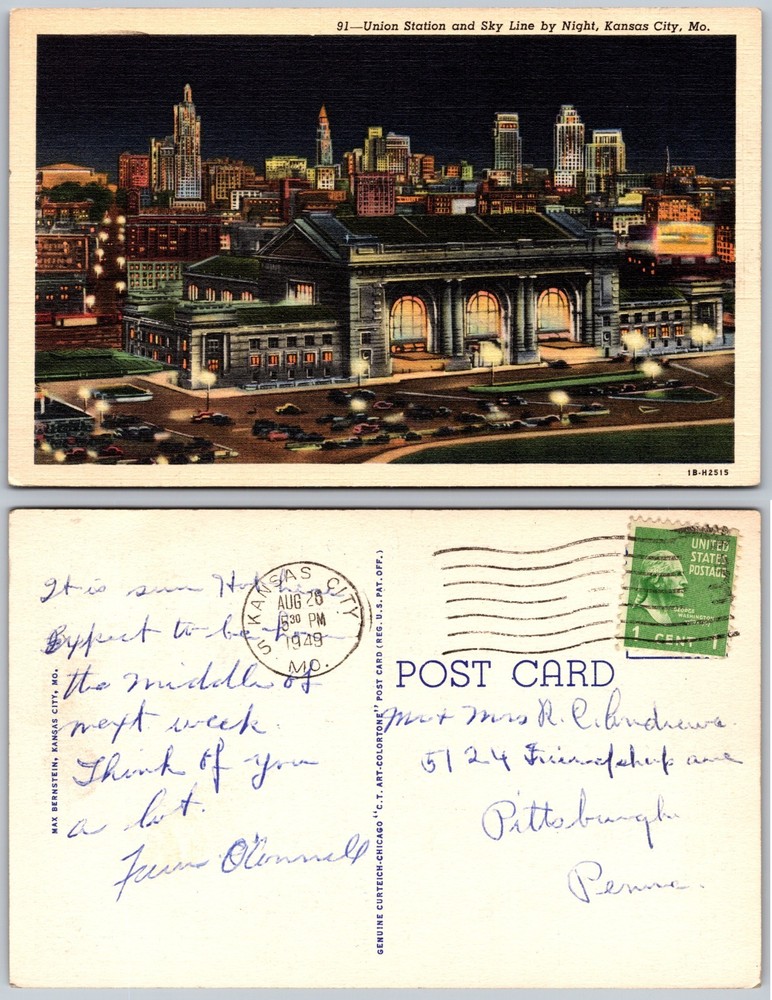 91—Union Station and Sky Line by Night, Kansas City, Mo.
1B-H2515
It is sure Hot here
Expect to be home
the middle of
next week.
Think of you
a lot.
O'Connell
KANSAS CITY
AUG 26
5 30 PM
1949
MO.
5
UNITED
STATES
POSTAGE
GEORGE
WASHINGTON
1 CENT 1
POST CARD
Mr + Mrs R. C. Andrews.
5124 Friendship ave
Pittsburgh
Penna.
MAX BERNSTEIN, KANSAS CITY, MO.
GENUINE CURTEICH-CHICAGO "C.T. ART-COLORTONE" POST CARD (REG. U.S. PAT. OFF.)